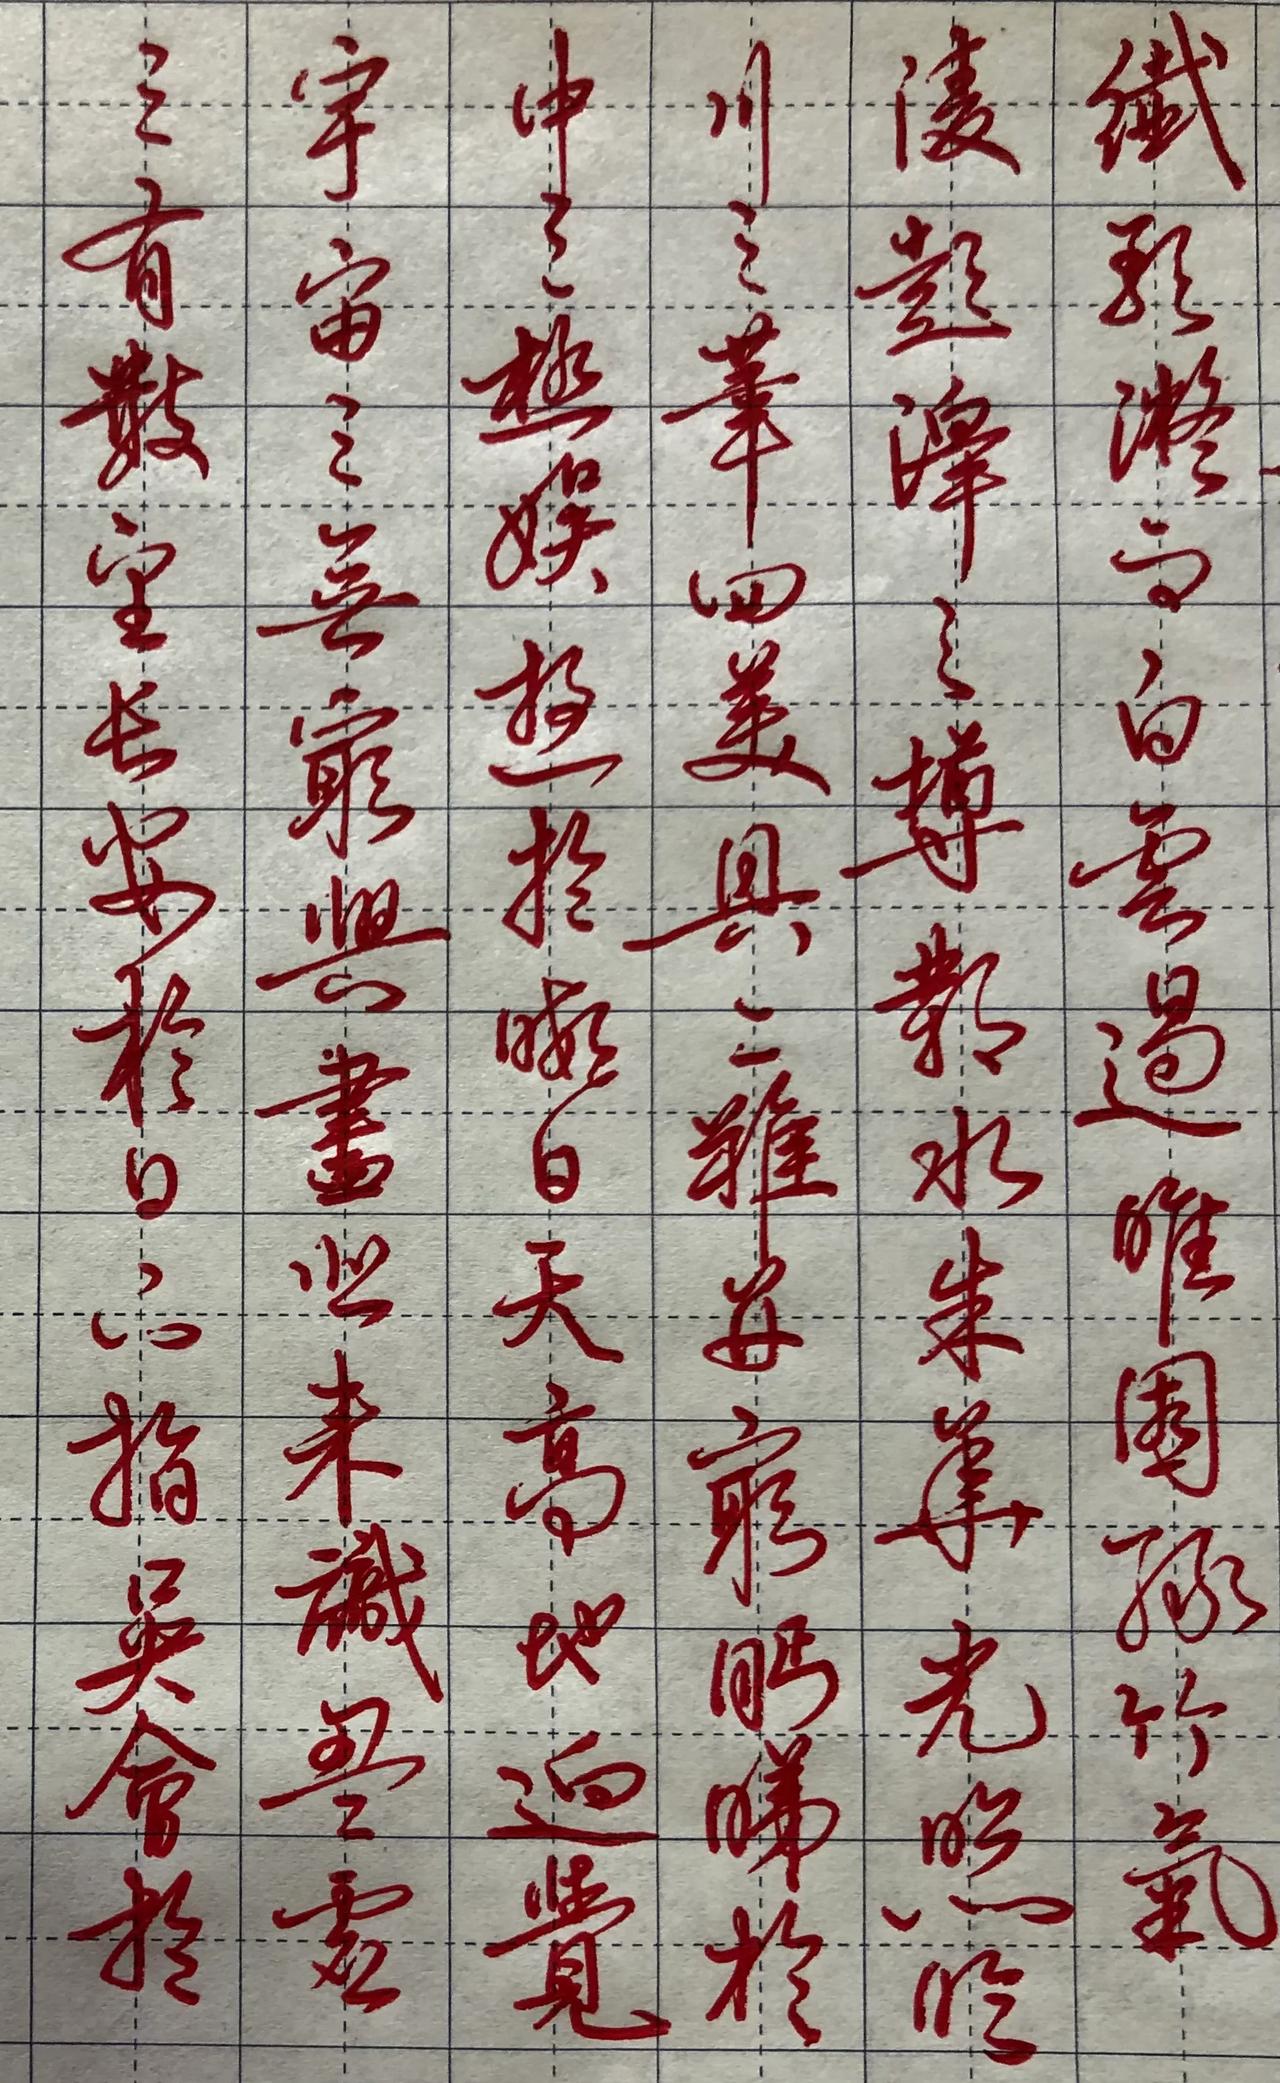 纖歌凝而白雲遏睢園綠竹氣
淩彭澤之樽鄴水朱華光照臨
川之筆四美具二難并窮眄睇於
中之極娛遊於暇日天高地迥覺
宇宙之無窮興盡悲來識盈虛
之有數望長安於日下指吳會於